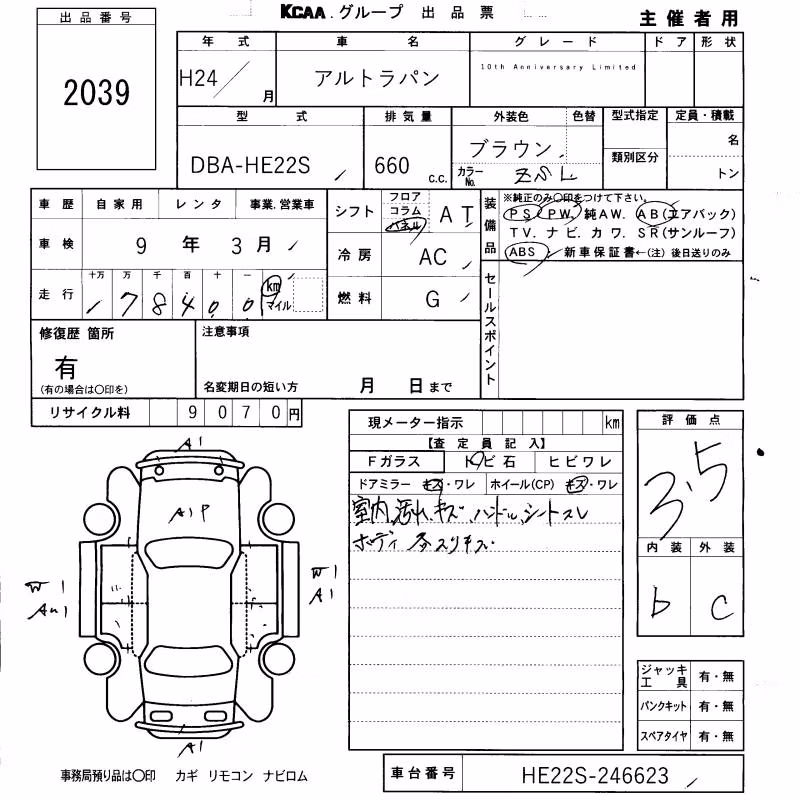 出品番号
2039
KCAA.グループ 出品票
主催者用
年式 車名 グレード ドア 形状
H24/月 アルトラパン 10th Anniversary Limited
型式 排気量 外装色 色替 型式指定 定員・積載
DBA-HE22S 660 c.c. ブラウン 名
カラーNo. ZSL 類別区分 トン
車歴 自家用 レンタ 事業.営業車
車検 9年3月
走行 十万 万 千 百 十 一
178400 km マイル
シフト フロア コラム パネル AT
冷房 AC
燃料 G
装備品
※純正のみ〇印をつけて下さい。
PS PW 純AW. AB(エアバック)
TV. ナビ. カワ. SR(サンルーフ)
ABS 新車保証書←(注) 後日送りのみ
セールスポイント
修復歴 箇所 注意事項
有
(有の場合は〇印を) 名変期日の短い方 月 日まで
リサイクル料 9070円
現メーター指示 km
【査定員記入】
Fガラス トビ石 ヒビワレ
ドアミラー キズ・ワレ ホイール(CP) キズ・ワレ
室内汚れ、キズ、ハンドル、シートスレ
ボディ 各スリキズ
評価点
3.5
内装 外装
b C
A1
A1P
W1
W1
A1
A1
ジャッキ工具 有・無
パンクキット 有・無
スペアタイヤ 有・無
事務局預り品は〇印 カギ リモコン ナビロム
車台番号 HE22S-246623